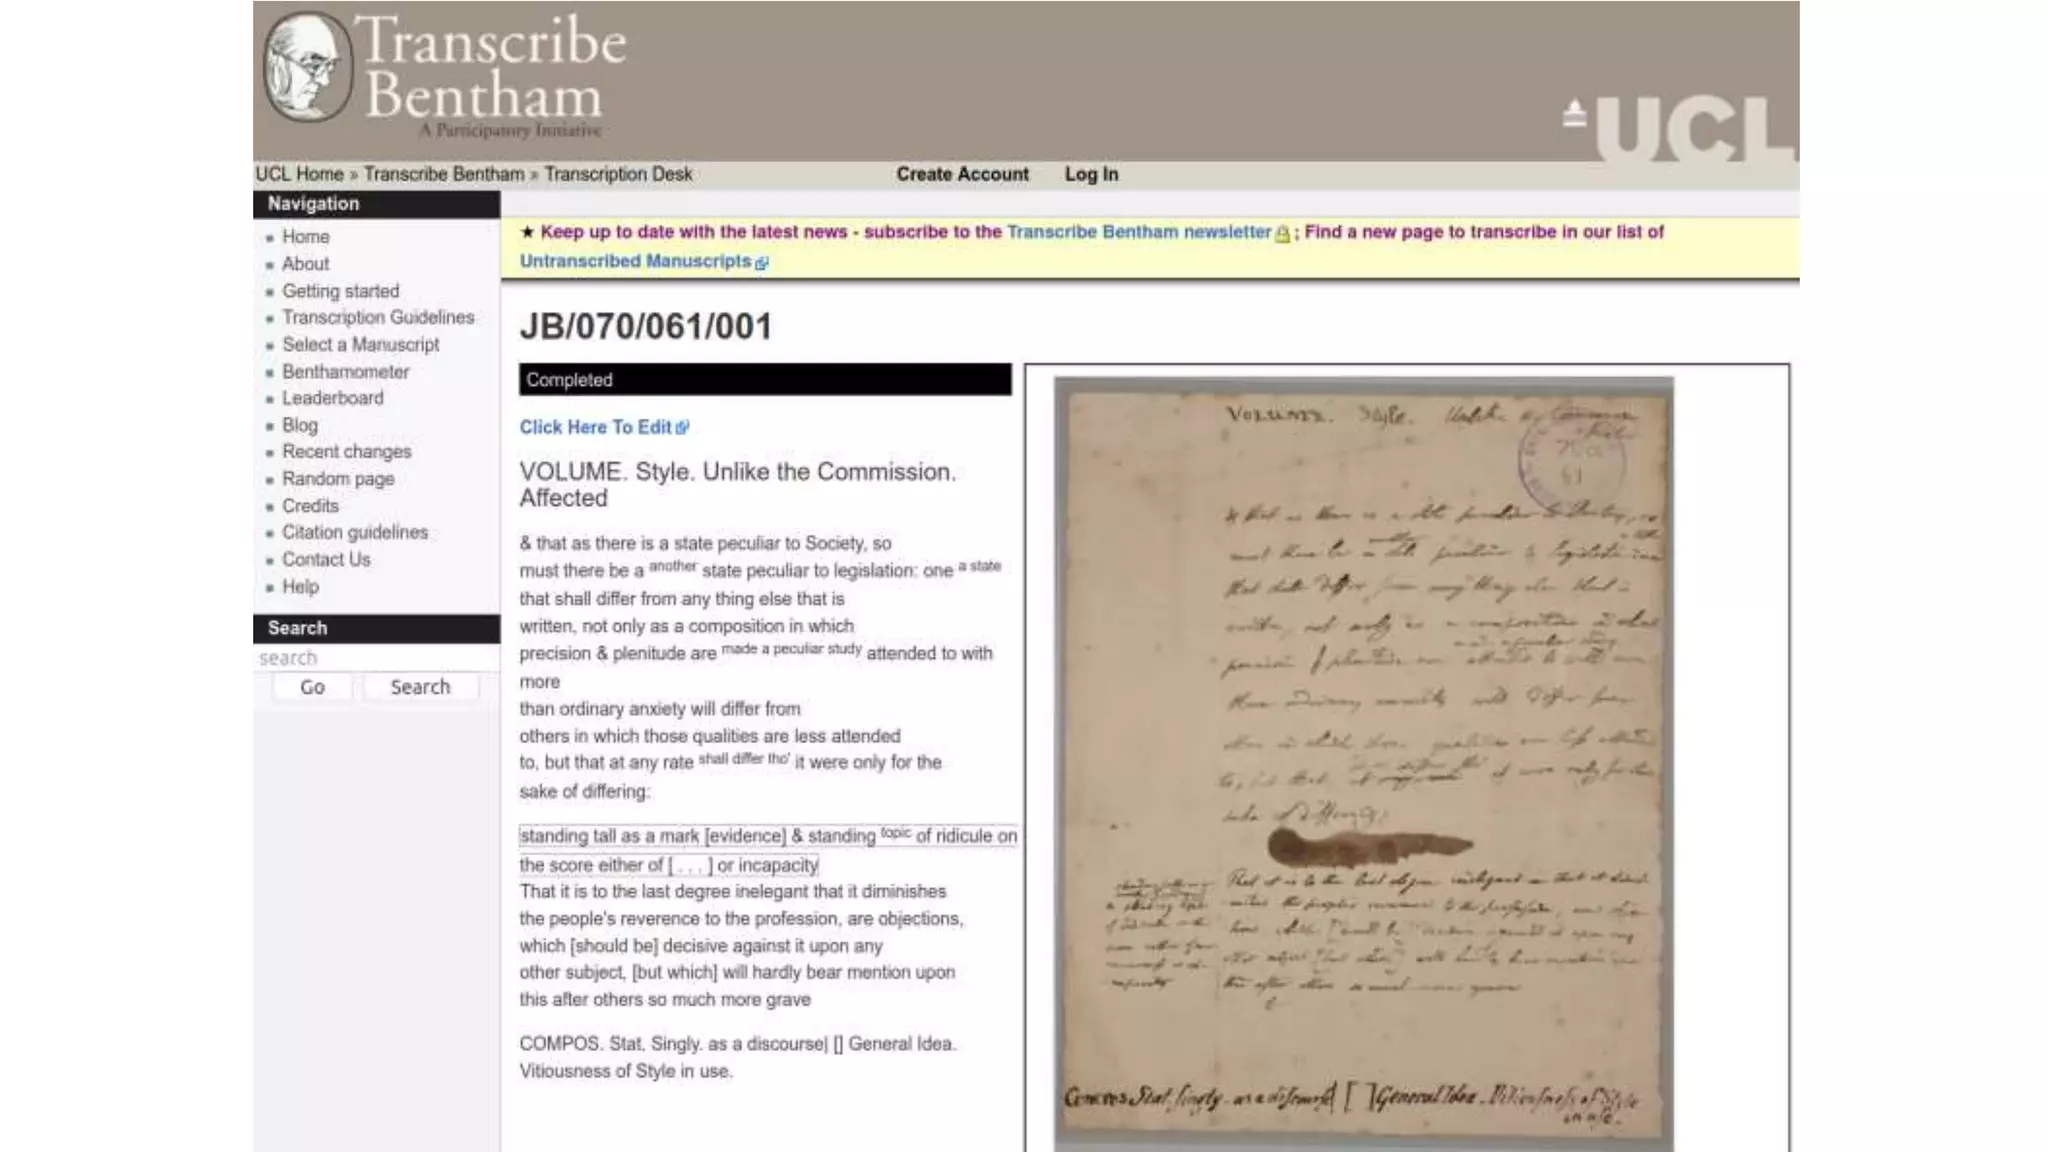 Transcribe
Bentham
A Participatory Initiative
UCL
UCL Home » Transcribe Bentham » Transcription Desk
Create Account
Log In
Navigation
Home
About
Getting started
Transcription Guidelines
Select a Manuscript
Benthamometer
Leaderboard
Blog
Recent changes
Random page
Credits
Citation guidelines
Contact Us
Help
Search
search
Go
Search
★ Keep up to date with the latest news - subscribe to the Transcribe Bentham newsletter ; Find a new page to transcribe in our list of
Untranscribed Manuscripts
JB/070/061/001
Completed
Click Here To Edit
VOLUME. Style. Unlike the Commission.
Affected
& that as there is a state peculiar to Society, so
must there be a another state peculiar to legislation: one a state
that shall differ from any thing else that is
written, not only as a composition in which
precision & plenitude are made a peculiar study attended to with
more
than ordinary anxiety will differ from
others in which those qualities are less attended
to, but that at any rate shall differ tho' it were only for the
sake of differing:
standing tall as a mark [evidence] & standing topic of ridicule on
the score either of [ . . . ] or incapacity
That it is to the last degree inelegant that it diminishes
the people's reverence to the profession, are objections,
which [should be] decisive against it upon any
other subject, [but which] will hardly bear mention upon
this after others so much more grave
COMPOS. Stat, Singly. as a discourse| [] General Idea.
Vitiousness of Style in use.
VOLUME. Style. Unlike
61
& that as there is a state peculiar to Society, so
must there be a state peculiar to legislation: one
that shall differ from any thing else that is
written, not only as a composition in which
sake of differing:
That it is to the last degree inelegant
COMPOS Stat, Singly. as a discourse| [ ] General Idea. Vitiousness of Style
in use.